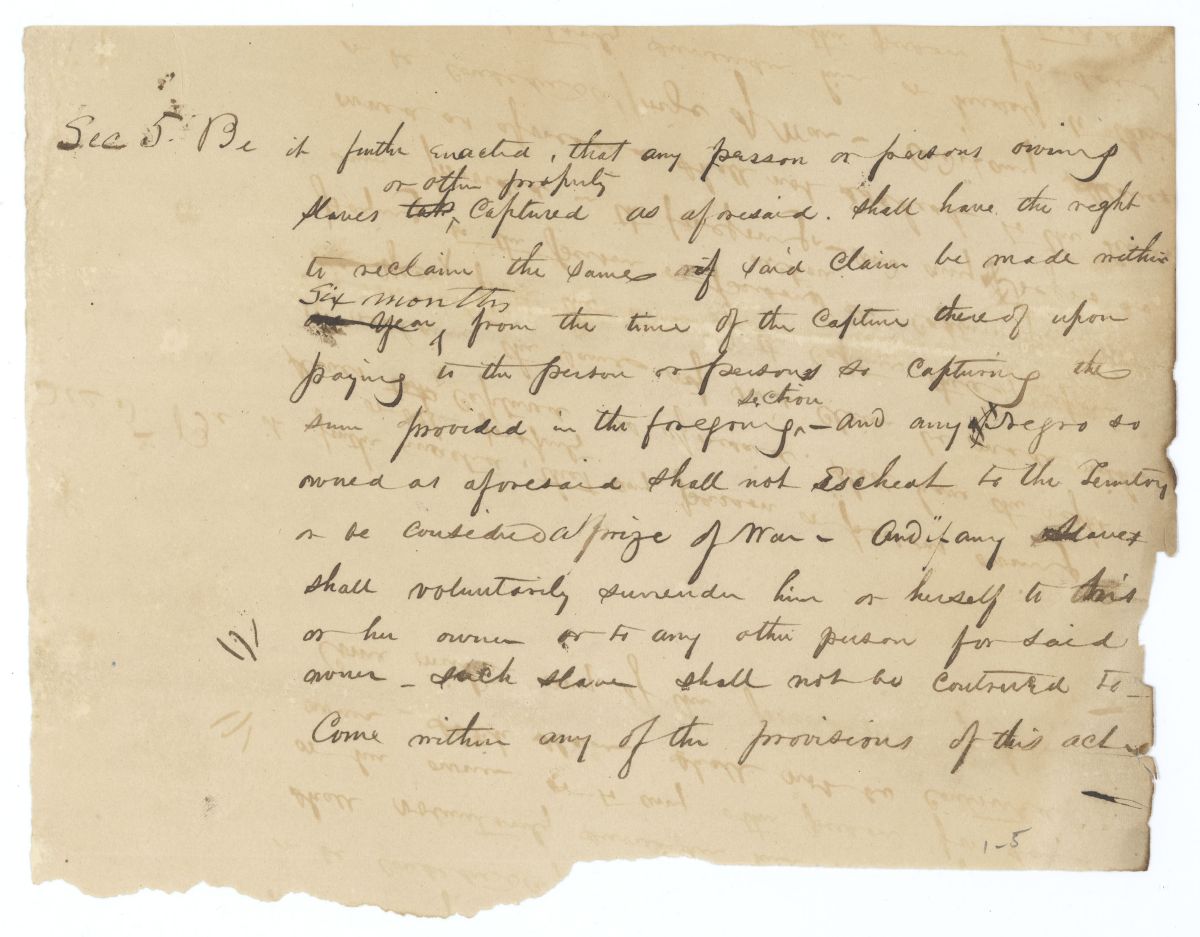 Sec 5. Be it further enacted, that any person or persons owning
or other property
slaves captured as aforesaid. shall have the right
to reclaim the same if said claim be made within
Six months
one year from the time of the capture thereof upon
paying to the person or persons so capturing the
section
sum provided in the foregoing - and any Negro so
owned as aforesaid shall not Escheat to the Territory
or be considered a prize of War - And if any slave
shall voluntarily surrender him or herself to his
or her owner or to any other person for said
owner - such slave shall not be contrued to
Come within any of the provisions of this act
(1)
1-5